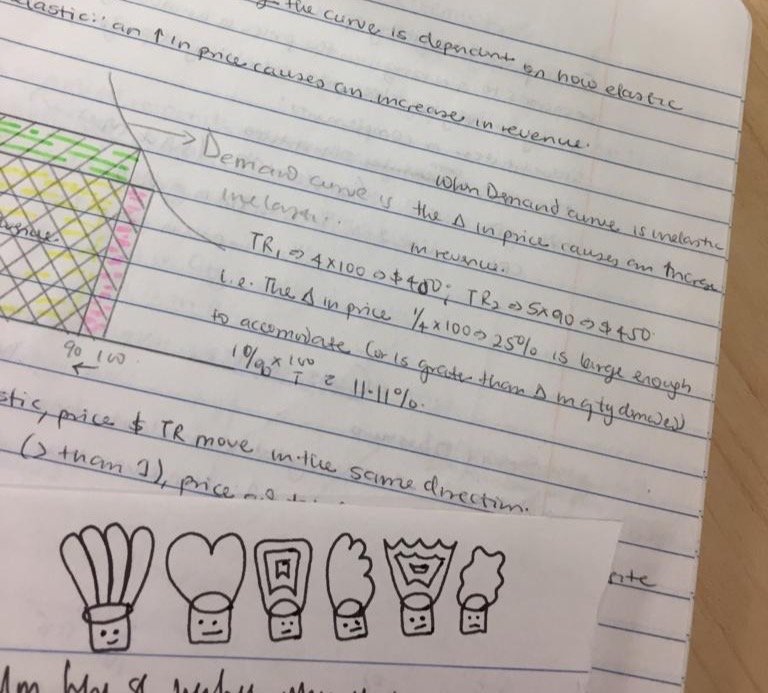 the curve is dependent on how elastic
elastic: an ↑ in price causes an increase in revenue.
Demand curve is inelastic.
When Demand curve is inelastic
the Δ in price causes an increase
in revenue.
TR₁ => 4x100 => $400; TR₂ => 5x90 => $450.
i.e. The Δ in price 1/4 x 100 => 25% is large enough
to accomodate (or is greater than Δ in qty
90 100
10/90 x 100 = 11.11%.
price & TR move in the same direction.
(> than 1), price